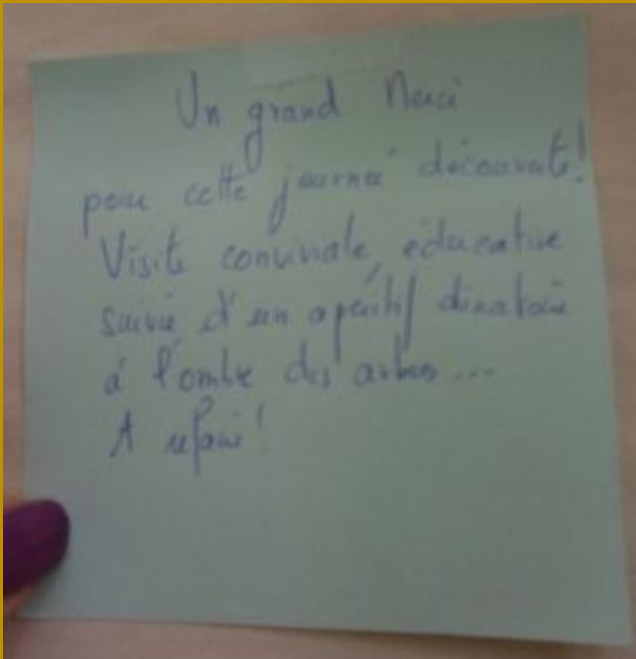 Un grand Merci
pour cette journée découverte!
Visite conviviale, éducative
suivie d'un apéritif dinatoire
à l'ombre des arbres...
A refaire!